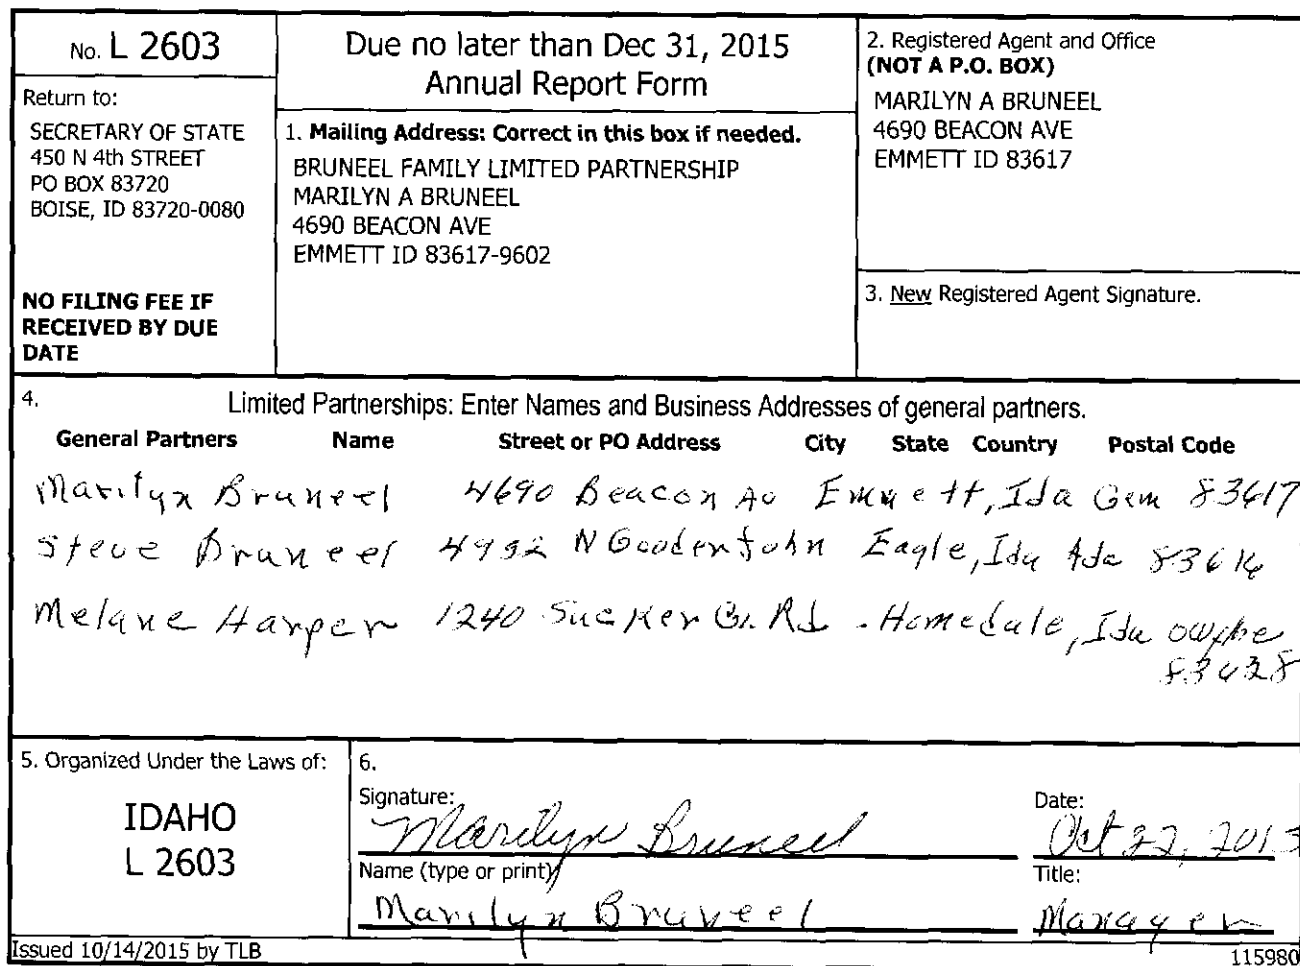 No. L 2603
Return to:
SECRETARY OF STATE
450 N 4th STREET
PO BOX 83720
BOISE, ID 83720-0080
NO FILING FEE IF
RECEIVED BY DUE
DATE
Due no later than Dec 31, 2015
Annual Report Form
1. Mailing Address: Correct in this box if needed.
BRUNEEL FAMILY LIMITED PARTNERSHIP
MARILYN A BRUNEEL
4690 BEACON AVE
EMMETT ID 83617-9602
2. Registered Agent and Office
(NOT A P.O. BOX)
MARILYN A BRUNEEL
4690 BEACON AVE
EMMETT ID 83617
3. New Registered Agent Signature.
4. Limited Partnerships: Enter Names and Business Addresses of general partners.
General Partners Name Street or PO Address City State Country Postal Code
Marilyn Bruneel 4690 Beacon Av Emmett, Ida Gem 83617
Steve Bruneel N Eagle, Ida Ada 83616
Melane Harper 1240 Sucker Cr. Rd. Homedale, Ida
83628
5. Organized Under the Laws of:
IDAHO
L 2603
6.
Signature: Marilyn Bruneel
Date: Oct 22, 2015
Name (type or print) Marilyn Bruneel
Title: Manager
Issued 10/14/2015 by TLB
115980